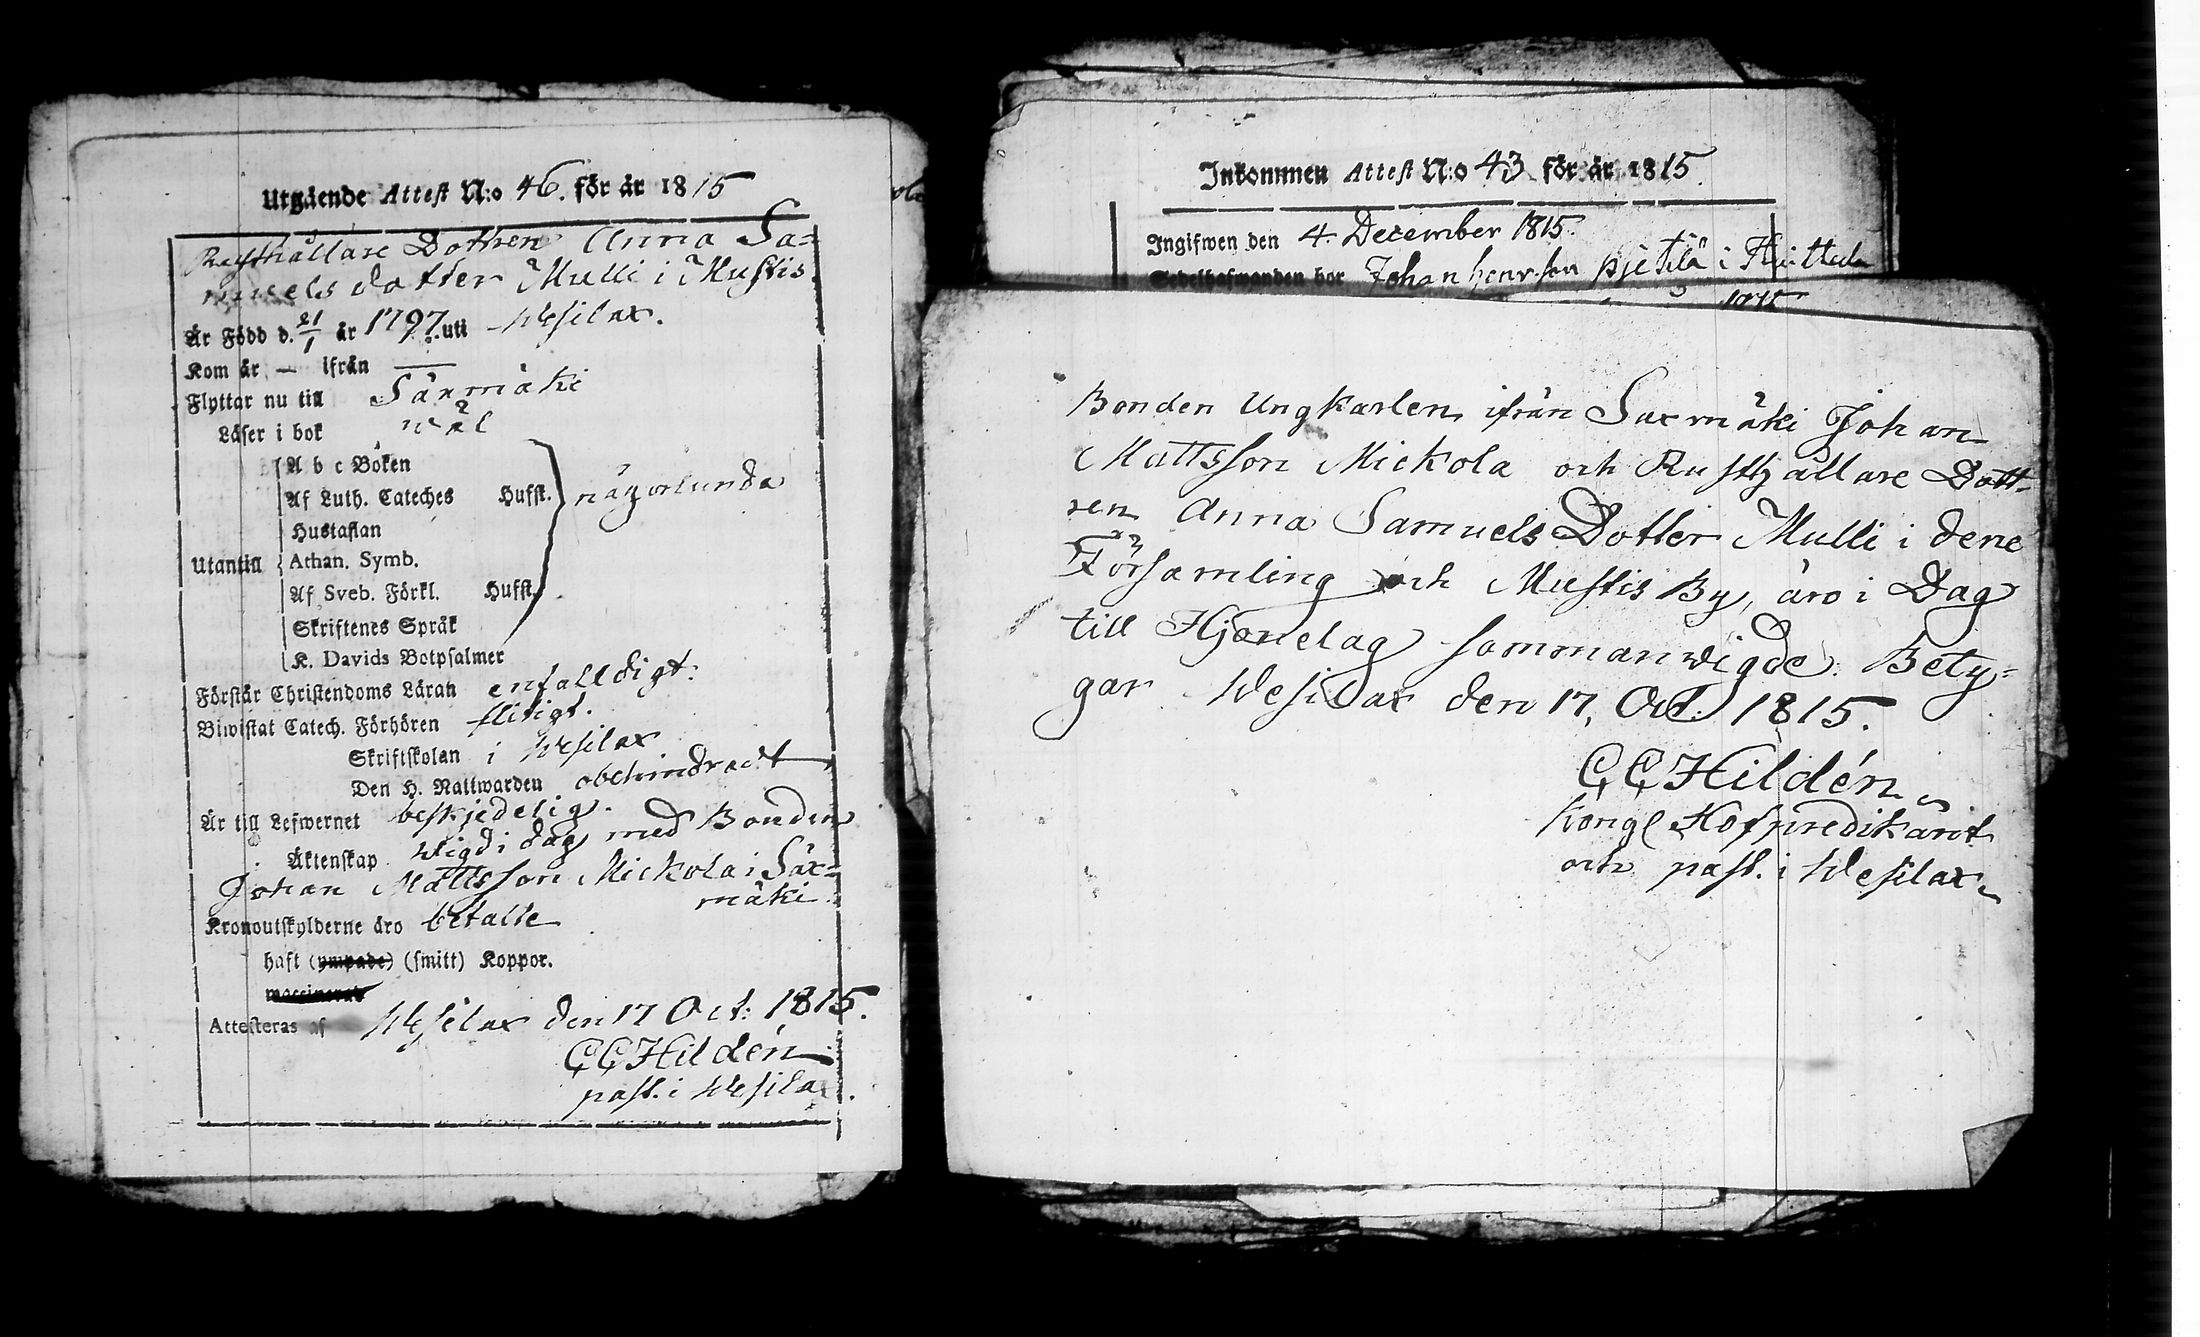 Utgående Attest N:o 46. för år 1815
Rusthållare Dottren Anna Sa=
muels dotter Mulli i Mustis
Är Född d. 21/1 år 1797. uti Wesilax.
Kom år — ifrån —
Flyttar nu till Säxmäki
Läser i bok wäl
A b c Boken
Af Luth. Cateches Hufst. någorlunda
Hustaflan
Utantill Athan. Symb.
Af Sveb. Förkl. Hufst.
Skriftenes Språk
K. Davids Botpsalmer
Förstår Christendoms Läran enfalldigt.
Biwistat Catech. Förhören flitigt.
Skriftskolan i Wesilax
Den H. Nattwarden obehindradt
Är till Lefwernet beskjedelig.
Äktenskap Wigd i dag med Bonden
Johan Mattsson Mickola i Säx=
mäki.
Kronoutskylderne äro betalte
haft (ympade) (smitt) Koppor.
vaccinerad
Attesteras af Wesilax den 17 Oct: 1815.
CCHildén
past. i Wesilax.
Inkommen Attest N:o 43 för år 1815.
Ingifwen den 4. December 1815.
Sedelhafwanden bor Johan Henr:son i Huittula
Bonden Ungkarlen ifrån Saxmäki Johan
Mattsson Mickola och Rusthållare Dott-
ren Anna Samuels Dotter Mulli i dene
Församling och Mustis By, äro i Dag
till Hjonelag sammanwigde. Bety=
gar Wesilax den 17. Oct. 1815.
CCHildén
Kongl Hofpredikant
och past. i Wesilax